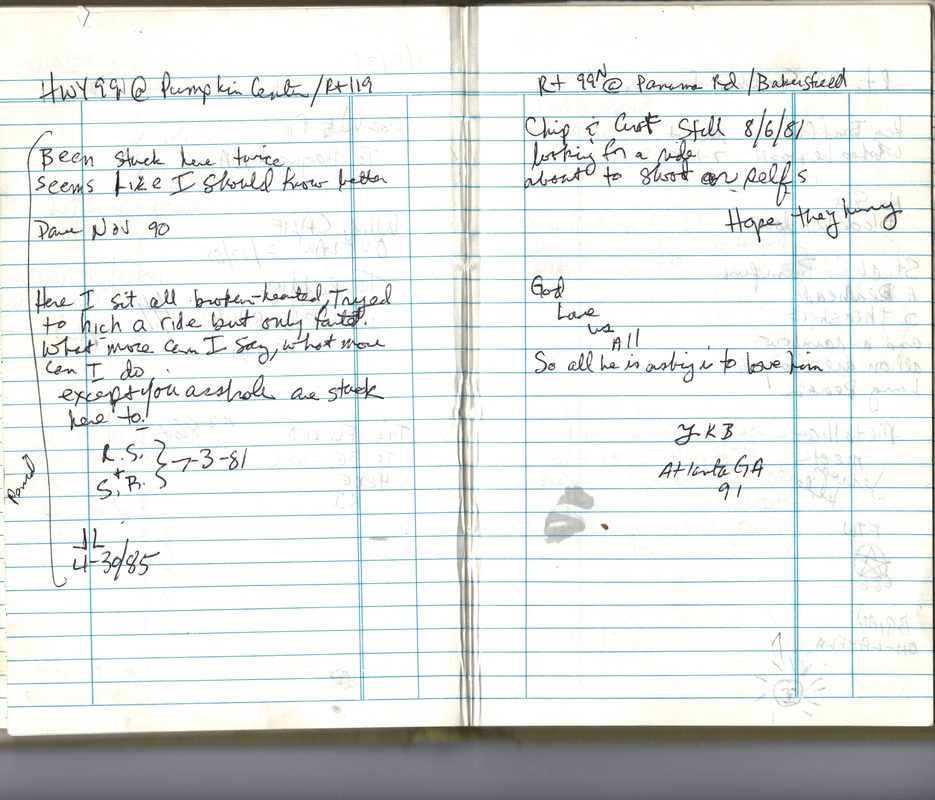 HWY 99N @ Pumpkin Center/Rt 119
Been stuck here twice
seems like I should know better
Dave Nov 90
Here I sit all broken-hearted, Tryed
to hich a ride but only farted.
What more can I say, what more
can I do
except you asshole are stuck
here to!
R.S. } 7-3-81
+
S.B.
JL
4-30/85
Rt 99N @ Panama Rd/Bakersfield
Chip & Curt Still 8/6/81
looking for a ride
about to shoot or selfs
Hope they hurry
God
Love
us
All
So all he is asking is to love him
JKB
Atlanta GA
91